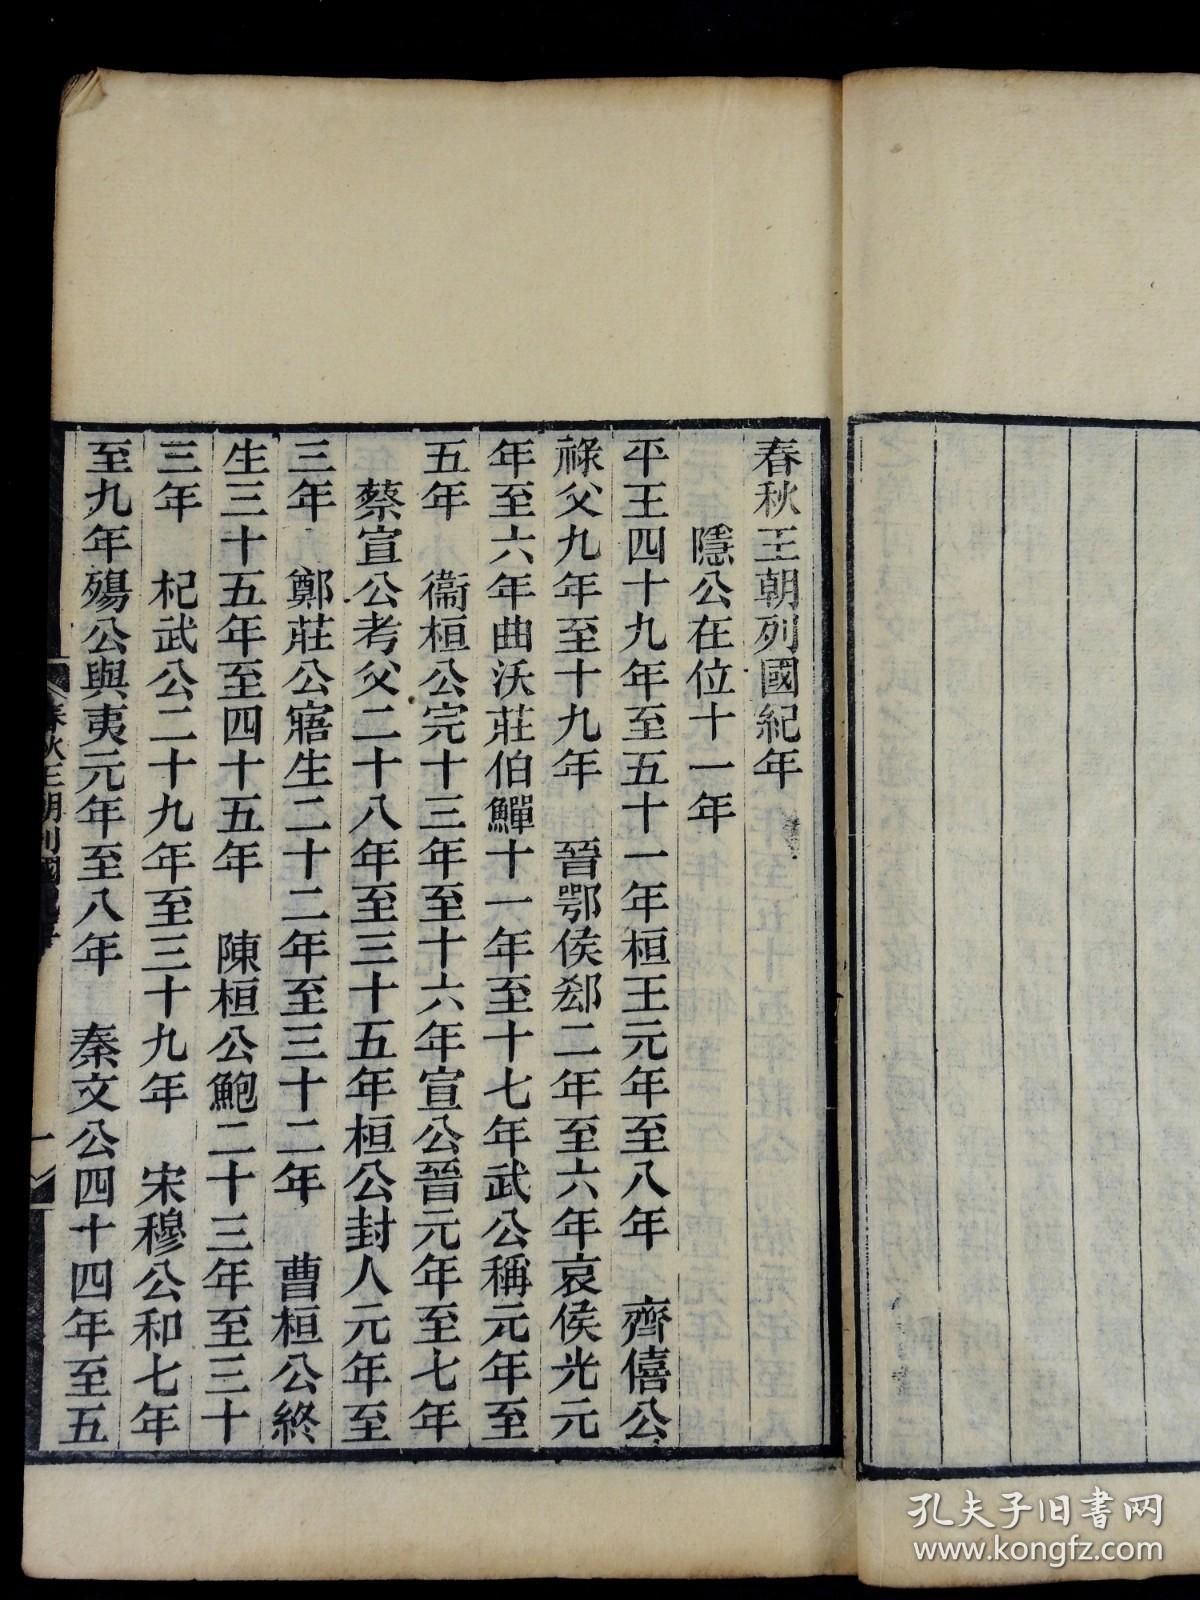 春秋王朝列國紀年
隱公在位十一年
平王四十九年至五十一年桓王元年至八年　齊僖公
祿父九年至十九年　晉鄂侯郄二年至六年哀侯光元
年至六年曲沃莊伯鱓十一年至十七年武公稱元年至
五年　衞桓公完十三年至十六年宣公晉元年至七年
蔡宣公考父二十八年至三十五年桓公封人元年至
三年　鄭莊公寤生二十二年至三十二年　曹桓公終
生三十五年至四十五年　陳桓公鮑二十三年至三十
三年　杞武公二十九年至三十九年　宋穆公和七年
至九年殤公與夷元年至八年　秦文公四十四年至五
春秋王朝列國紀年
一
孔夫子旧书网
www.kongfz.com